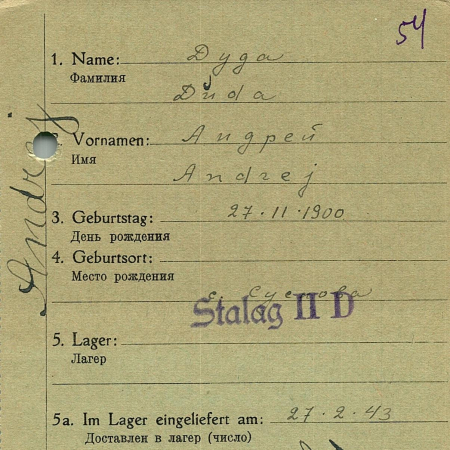 54
1. Name: Дуда
Фамилия
Duda
2. Vornamen: Андрей
Имя
Andrej
3. Geburtstag: 27.11.1900
День рождения
4. Geburtsort:
Место рождения
с.
Stalag II D
5. Lager:
Лагер
5a. Im Lager eingeliefert am: 27.2.43
Доставлен в лагер (число)
Andrej